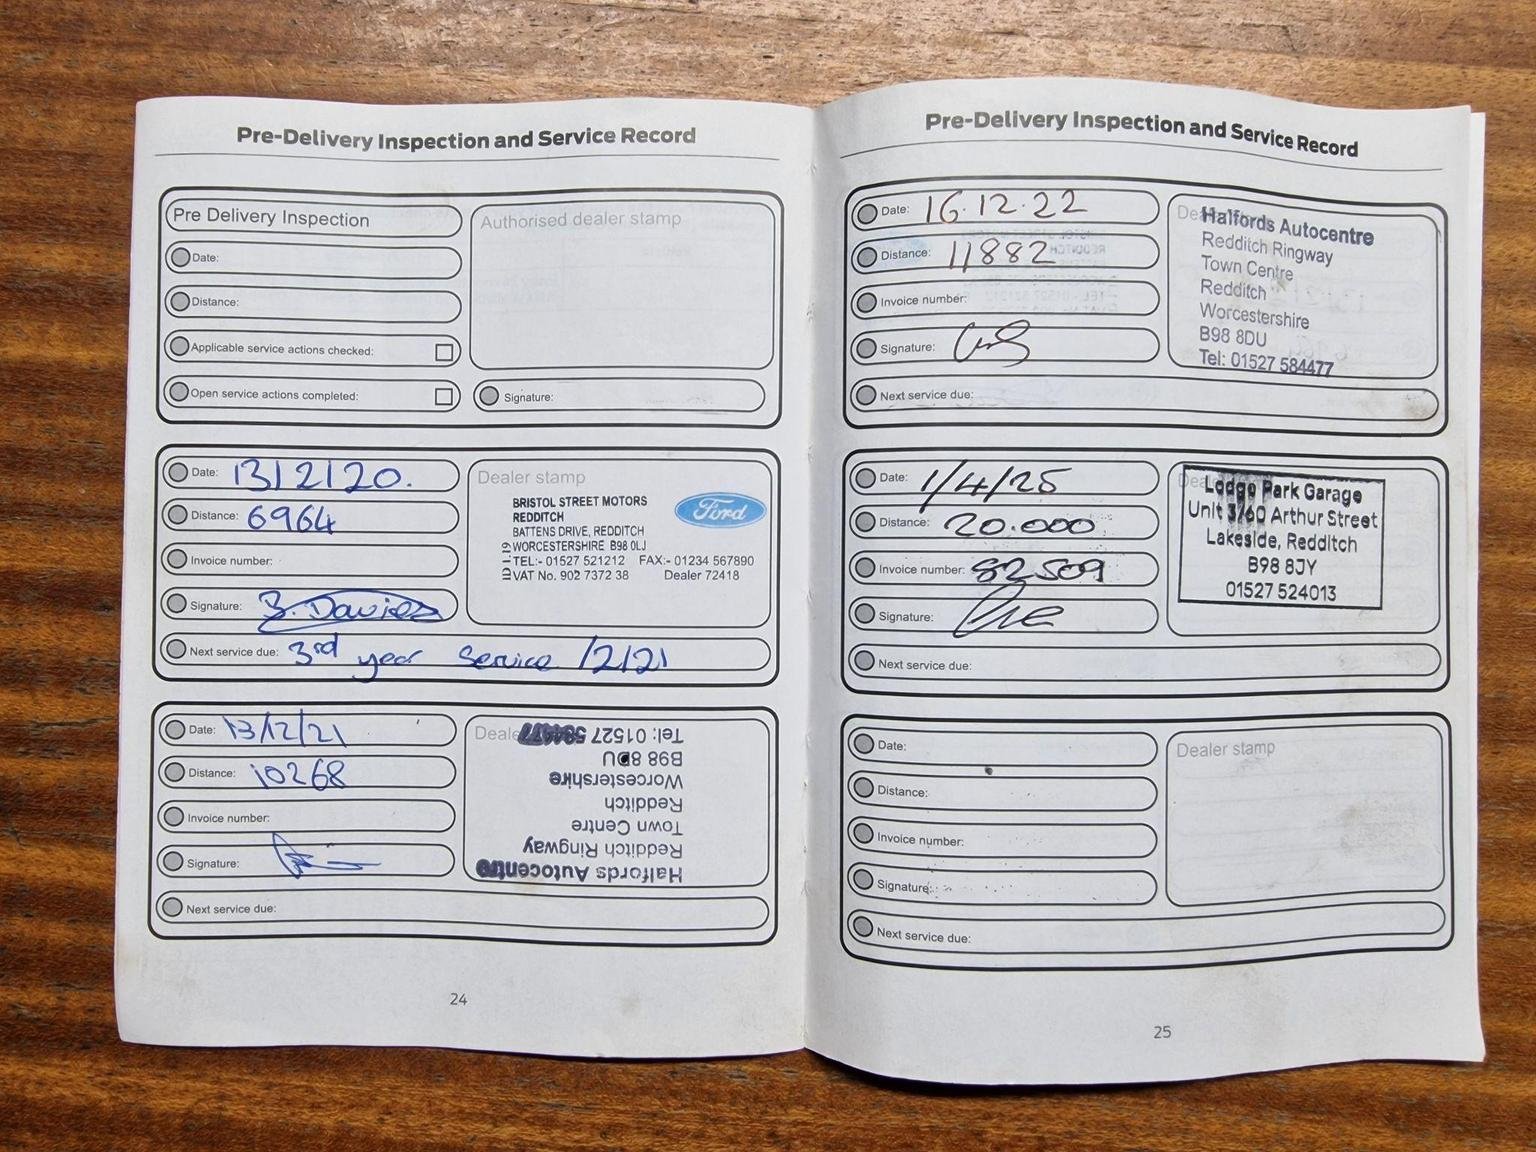 Pre-Delivery Inspection and Service Record
Pre Delivery Inspection
Authorised dealer stamp
Date:
Distance:
Applicable service actions checked:
Open service actions completed:
Signature:
Date: 13/2/20.
Distance: 6964
Invoice number:
Signature: B. Davies
Next service due: 3rd year Service 12/21
Dealer stamp
BRISTOL STREET MOTORS
REDDITCH
BATTENS DRIVE, REDDITCH
WORCESTERSHIRE B98 0LJ
TEL:- 01527 521212 FAX:- 01234 567890
VAT No. 902 7372 38 Dealer 72418
Ford
Date: 13/12/21
Distance: 10268
Invoice number:
Signature:
Next service due:
Halfords Autocentre
Redditch Ringway
Town Centre
Redditch
Worcestershire
B98 8DU
Tel: 01527 584477
24
Pre-Delivery Inspection and Service Record
Date: 16.12.22
Distance: 11882
Invoice number:
Signature:
Next service due:
Halfords Autocentre
Redditch Ringway
Town Centre
Redditch
Worcestershire
B98 8DU
Tel: 01527 584477
Date: 1/4/25
Distance: 20.000
Invoice number: 82509
Signature:
Next service due:
Lodge Park Garage
Unit 3/60 Arthur Street
Lakeside, Redditch
B98 8JY
01527 524013
Date:
Distance:
Invoice number:
Signature:
Next service due:
Dealer stamp
25